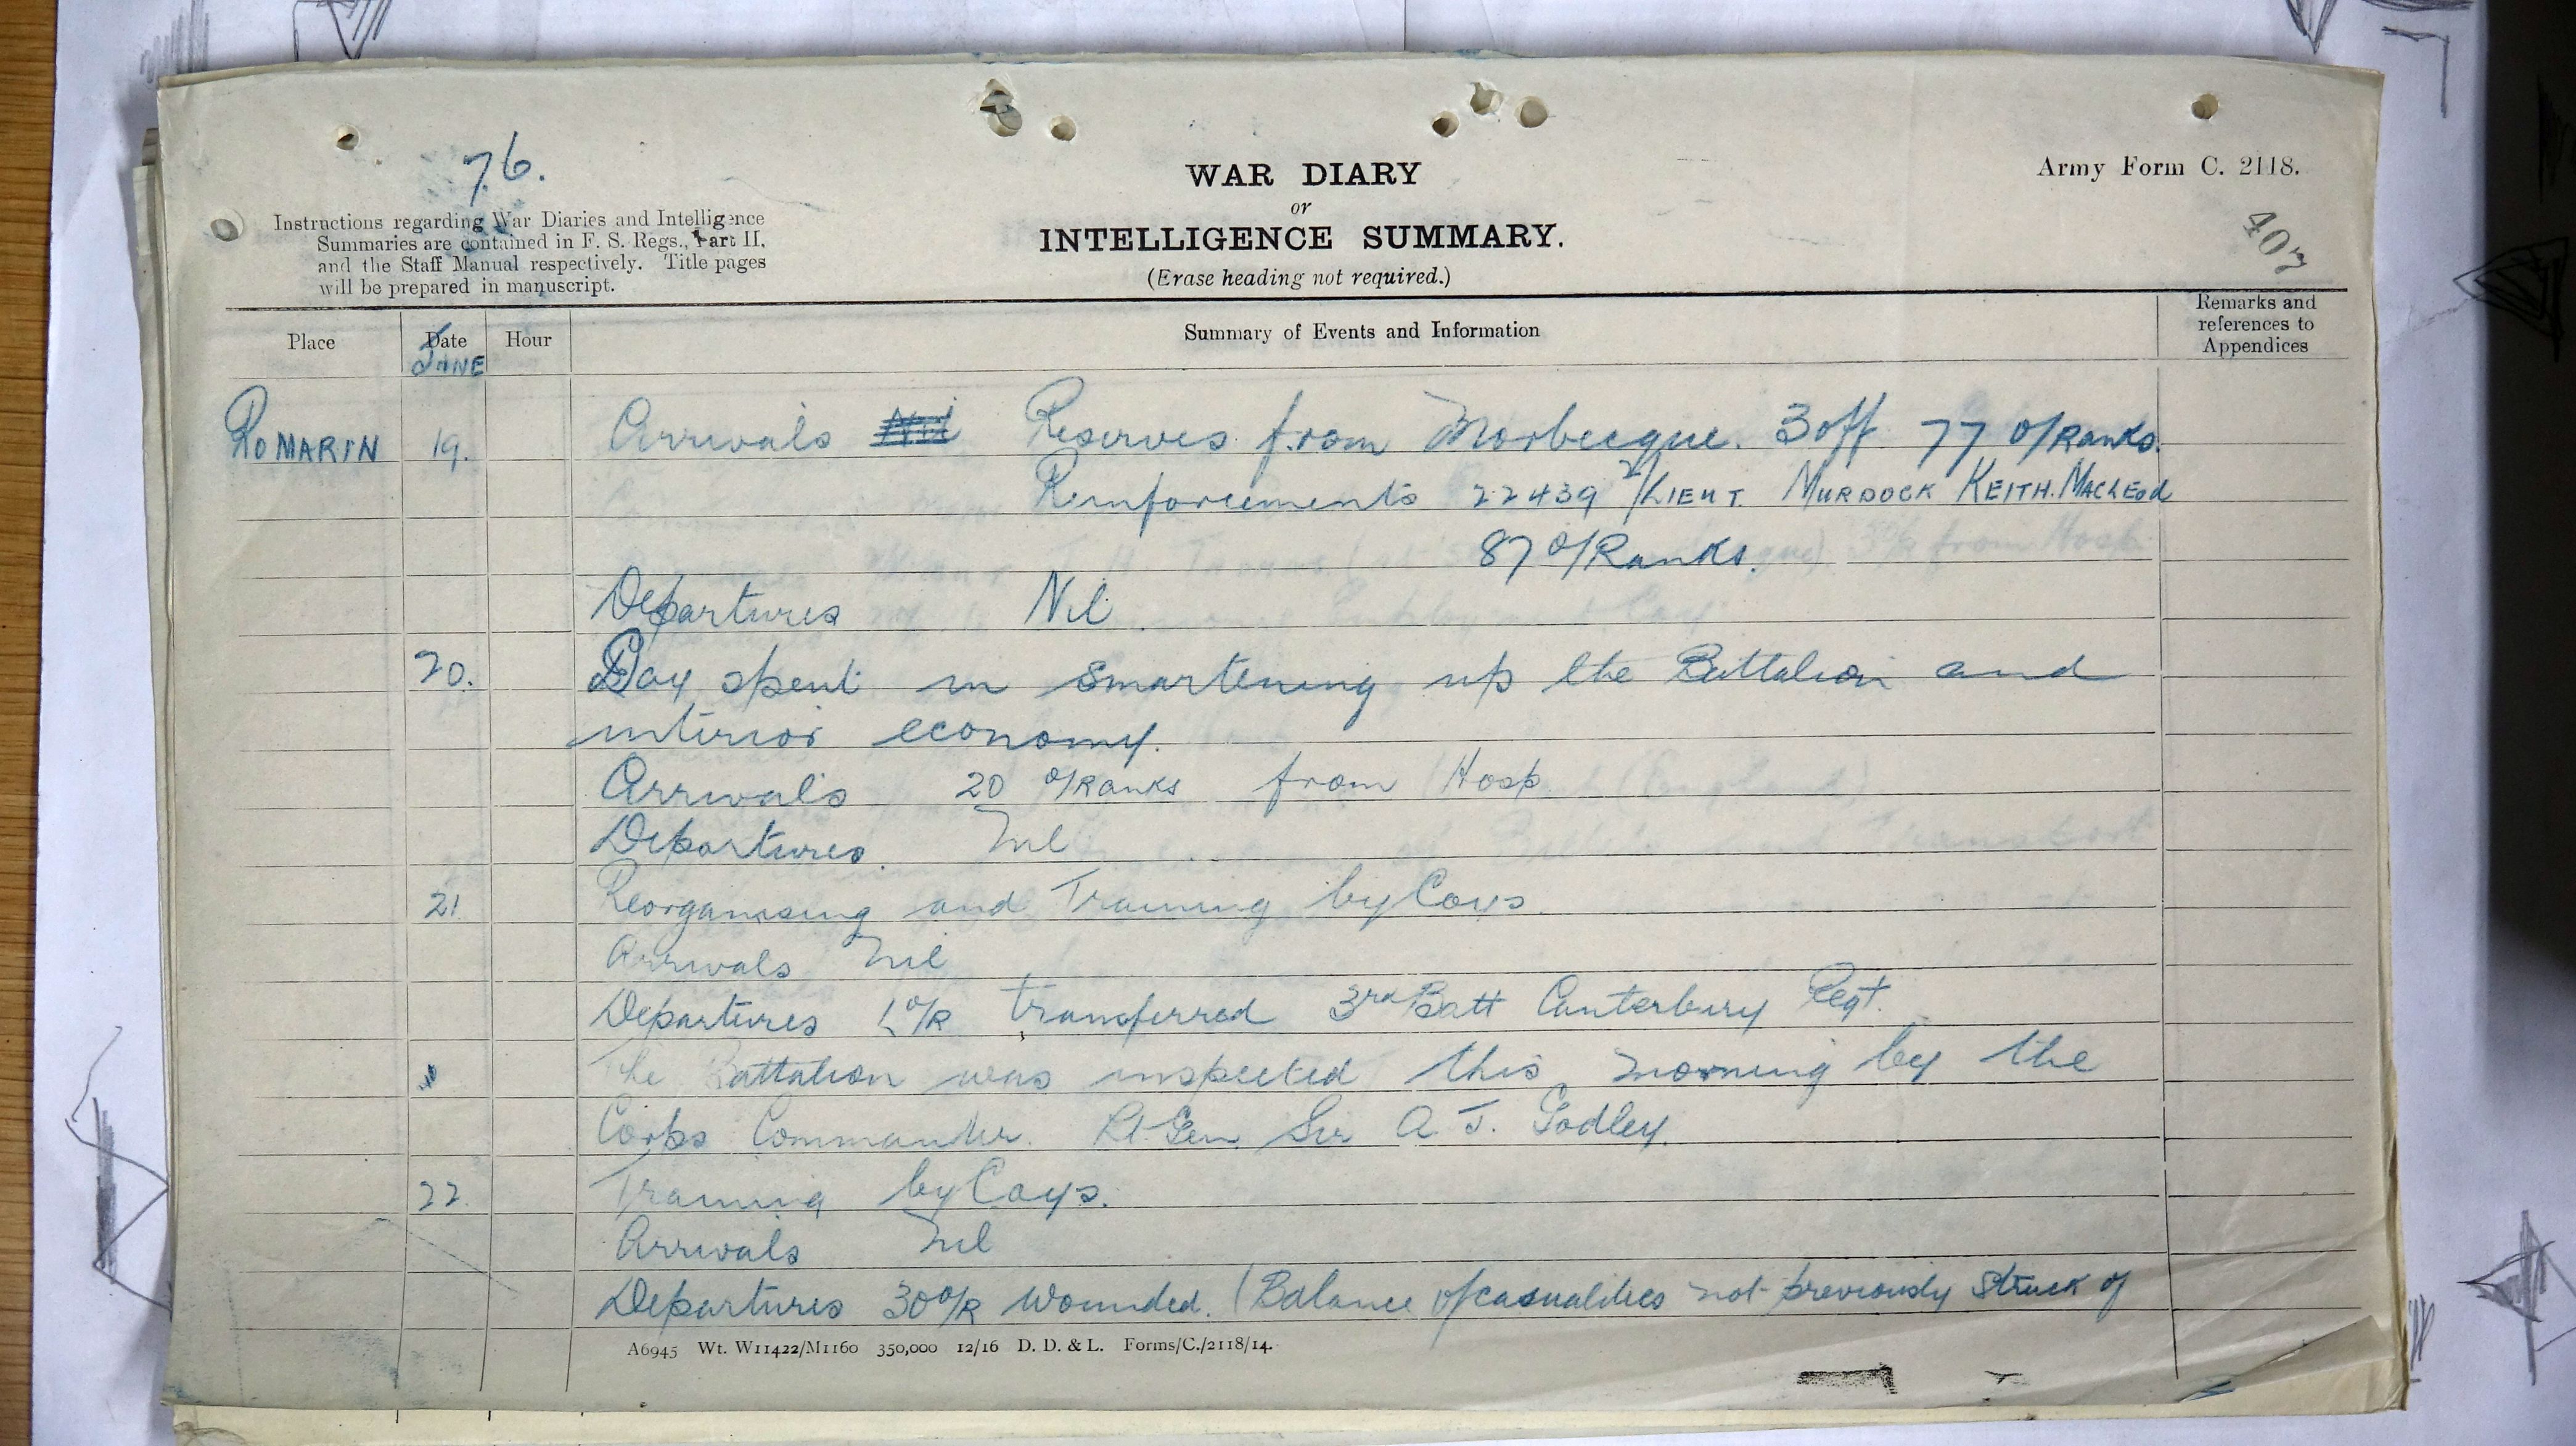 76.
WAR DIARY
or
INTELLIGENCE SUMMARY.
(Erase heading not required.)
Army Form C. 2118.
407
Instructions regarding War Diaries and Intelligence
Summaries are contained in F. S. Regs., Part II,
and the Staff Manual respectively. Title pages
will be prepared in manuscript.
Place Date Hour Summary of Events and Information Remarks and references to Appendices
JUNE
ROMARIN 19. Arrivals Nil Reserves from Morbecque. 3 off 77 O/Ranks.
Reinforcements 22439 2/LIEUT. MURDOCK KEITH. MACLEOD
87 O/Ranks.
Departures Nil
20. Day spent in smartening up the Battalion and
interior economy.
Arrivals 20 O/Ranks from Hosp
Departures. Nil
21 Reorganising and Training by Coys.
Arrivals Nil
Departures 1 O/R transferred 3rd Batt Canterbury Regt.
The Battalion was inspected this morning by the
Corps Commander. Lt. Gen Sir A. J. Godley.
22. Training by Coys.
Arrivals Nil
Departures 30 O/R wounded. (Balance of casualities not previously struck of
A6945 Wt. W11422/M1160 350,000 12/16 D. D. & L. Forms/C./2118/14.